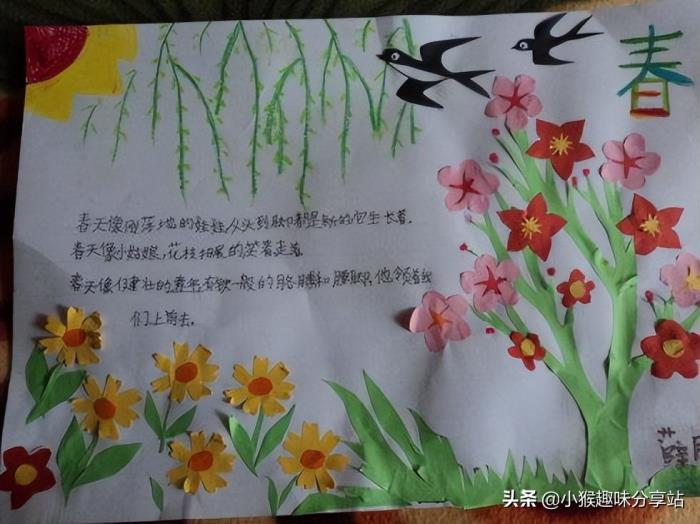 春
春天像刚落地的娃娃从头到脚都是新的它生长着.
春天像小姑娘,花枝招展的笑着走着
春天像健壮的青年有铁一般的胳膊和腰脚他领着我
们上前去.
头条 @小猴趣味分享站